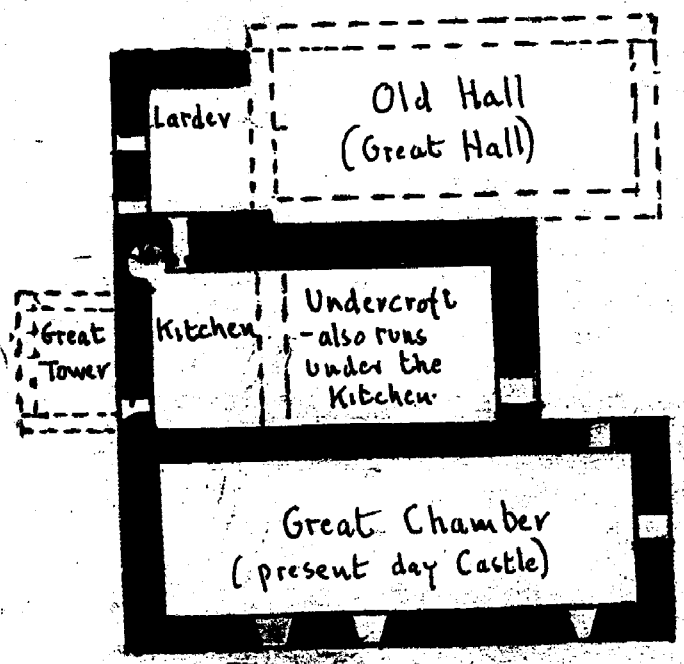 Larder
Old Hall
(Great Hall)
Great
Tower
Kitchen
Undercroft
-also runs
under the
Kitchen.
Great Chamber
(present day Castle)